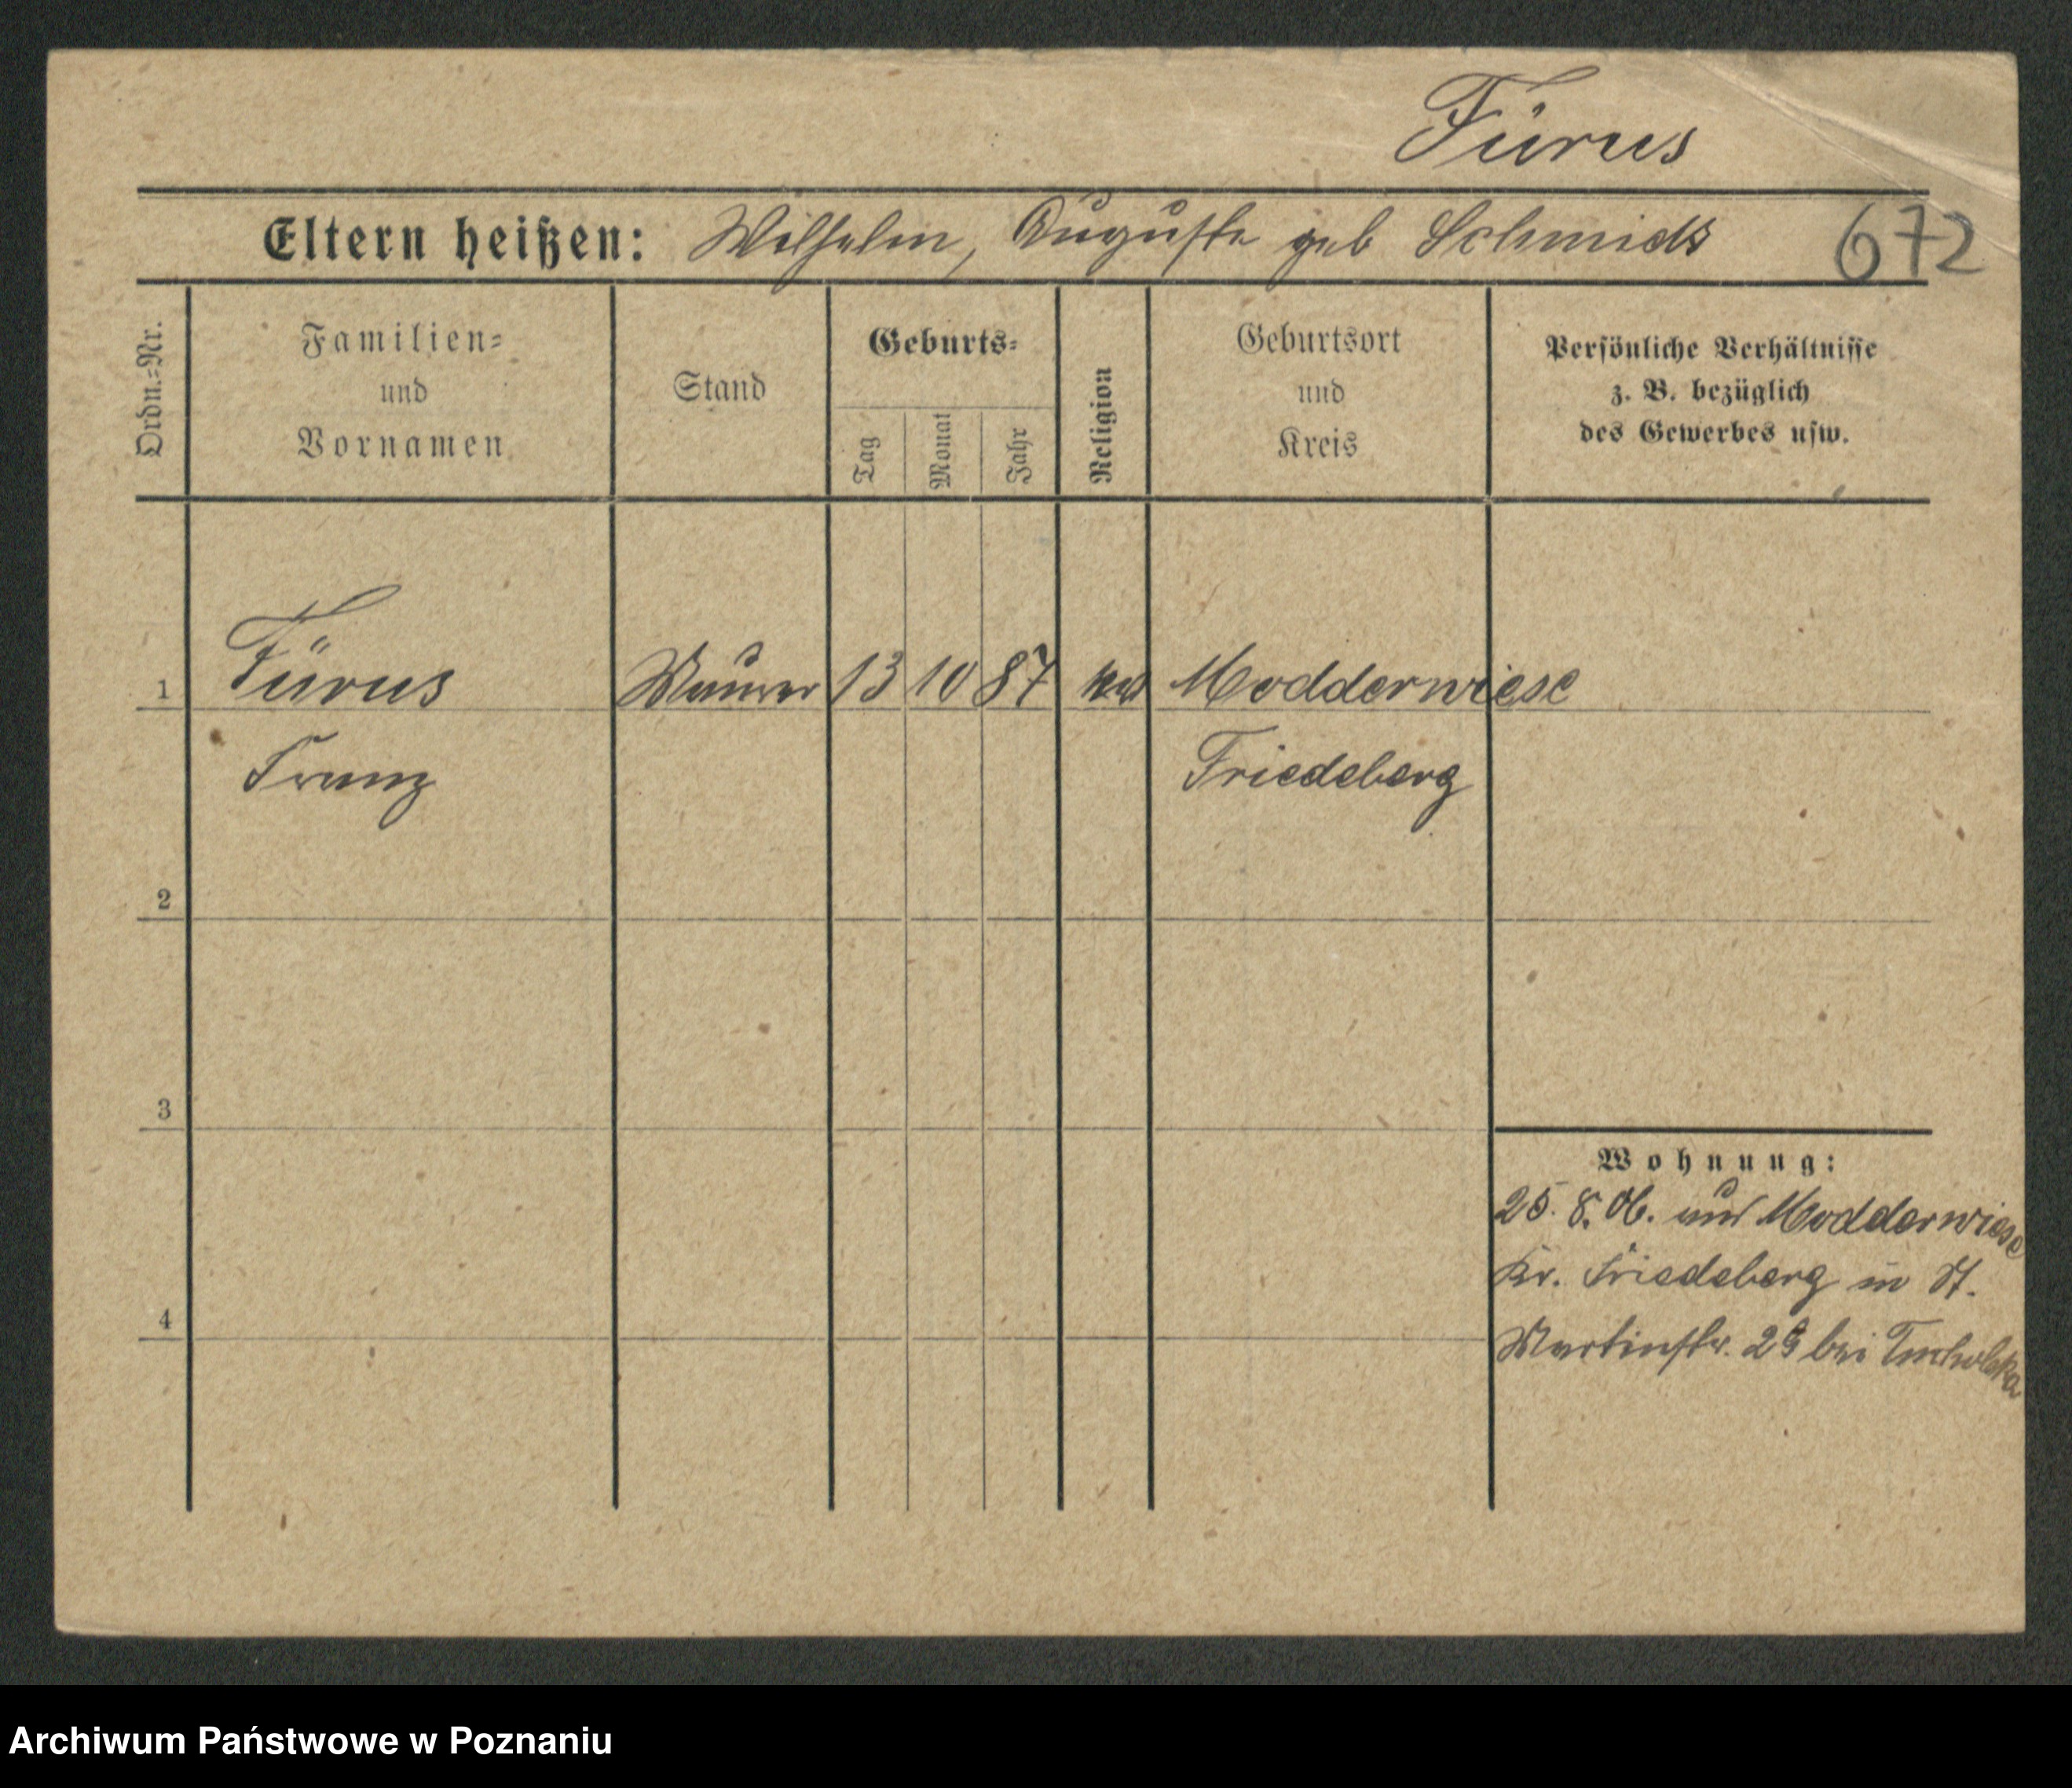 Fürus
Eltern heißen: Wilhelm, Auguste geb Schmidt 672
Ordn.=Nr.
Familien=
und
Vornamen
Stand
Geburts=
Tag
Monat
Jahr
Religion
Geburtsort
und
Kreis
Persönliche Verhältnisse
z. B. bezüglich
des Gewerbes usw.
1 Fürus Maurer 13 10 87 Modderwiese
Franz Friedeberg
2
3
4
Wohnung:
25. 8. 06. aus Modderwiese
Kr. Friedeberg in St.
Martinstr. bei
Archiwum Państwowe w Poznaniu